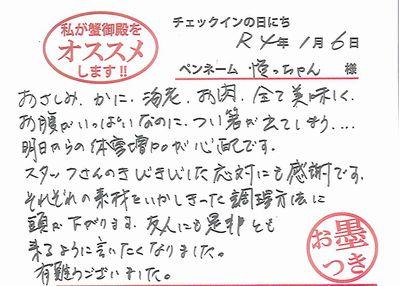 私が蟹御殿を
オススメ
します!!
チェックインの日にち
R4年1月6日
ペンネーム 悦っちゃん 様
おさしみ、かに、海老、お肉、全て美味しく、
お腹がいっぱいなのに、つい箸が出てしまう…
明日からの体重増加が心配です。
スタッフさんのきびきびした応対にも感謝です。
それぞれの素材をいかしきった調理方法に
頭が下がります。友人にも是非とも
来るように言いたくなりました。
有難うございました。
お墨
つき